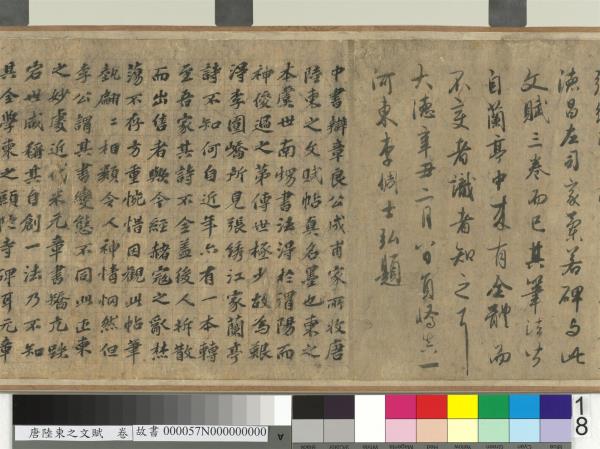 德昌左司家蘭若碑与此
文賦三卷而已其筆法皆
自蘭亭中来有全體而
不变者識者知之
大德辛丑二月八日員嶠真一
河東李倜士弘題
中書辦章良公成甫家所收唐
陸柬之文賦帖真名墨也柬之
本虞世南甥書法得於渭陽而
神俊過之第傳世極少故為艱
得李園嶠所見張綉江家蘭亭
詩不知何自近年亦有一本轉
至吾家其詩不全蓋後人拆散
而出售者令經赭寇之亂焚
蕩不存方重慨惜因觀此帖筆
埶翩〻相類令人神情怳然但
李公謂其書變態不同此正柬
之妙處近代米元章書矯亢跌
宕世咸稱其自創一法乃不知
具全學柬之頭陁寺碑耳元章
唐陸柬之文賦　卷
故書 000057N000000000
A
18
Black
White
Magenta
Red
Yellow
Green
Cyan
Blue